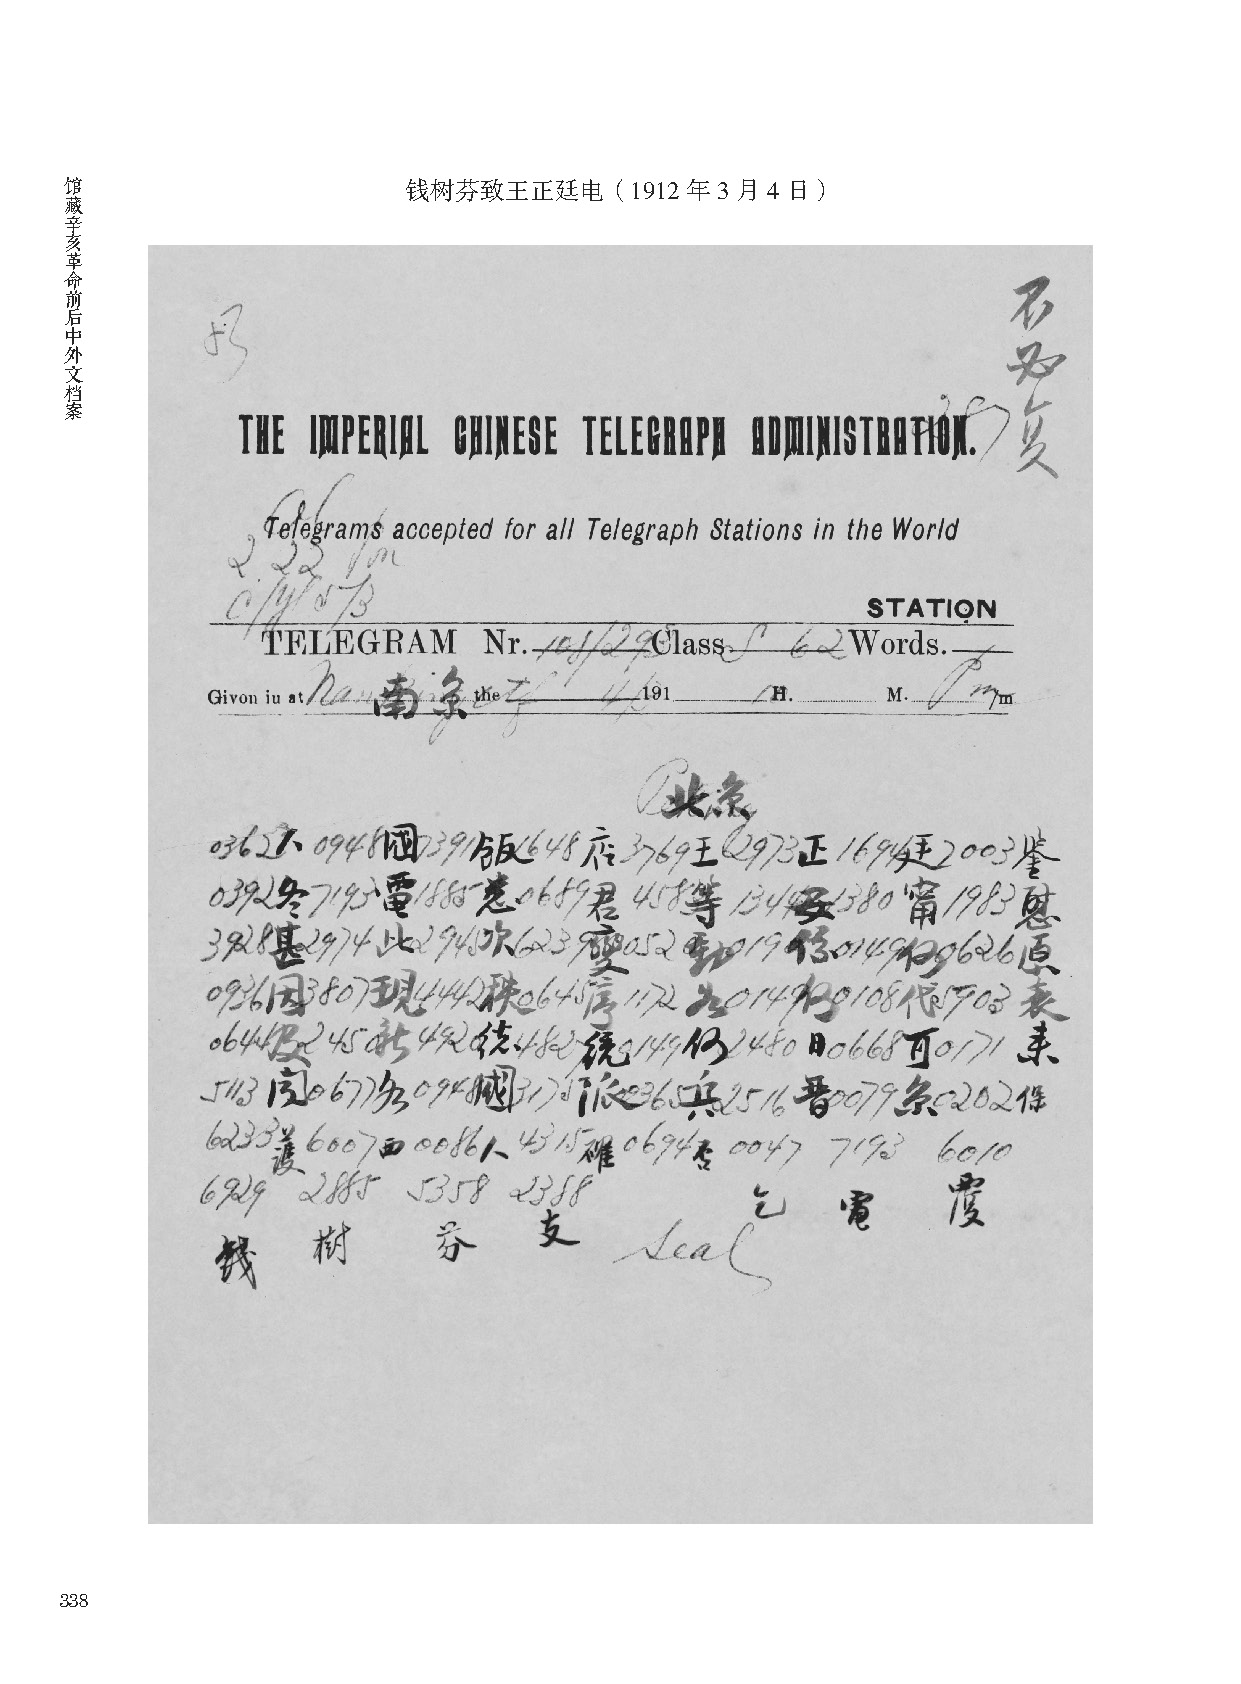 馆藏辛亥革命前后中外文档案
钱树芬致王正廷电（1912年3月4日）
不必复
THE IMPERIAL CHINESE TELEGRAPH ADMINISTRATION.
Telegrams accepted for all Telegraph Stations in the World
2 22 Pm
STATION
TELEGRAM Nr. 108/298 Class S 62 Words.
Givon iu at 南京 the 4/3 191 H. M. Pm /m
北京
0362六 0948國 7391飯 1648店 3769王 2973正 1694廷 2003鉴
0392冬 7193電 1885悉 0689君 4583等 1344安 1380甯 1983慰
3928甚 2974此 2945次 6239變 0520動 0190係 0149何 0626原
0936因 3807現 4442秩 0645序 1172如 0149何 0108代 5903表
0644没 2450新 4920 4827 0149何 2480日 0668可 0171来
5113閣 0677各 0948國 3175派 0365兵 2516晋 0079京 0202保
6233護 6007西 0086人 4315確 0694否 0047 7193 6010
6929 2885 5358 2388 乞 電 覆
钱 樹 芬 支 Seal
338